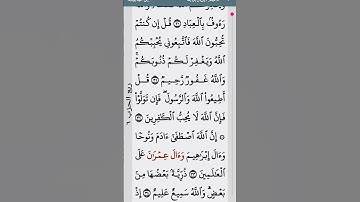 رَءُوفُۢ بِٱلۡعِبَادِ ٣٠ قُلۡ إِن كُنتُمۡ
تُحِبُّونَ ٱللَّهَ فَٱتَّبِعُونِي يُحۡبِبۡكُمُ
ٱللَّهُ وَيَغۡفِرۡ لَكُمۡ ذُنُوبَكُمۡۚ
وَٱللَّهُ غَفُورٞ رَّحِيمٞ ٣١ قُلۡ
أَطِيعُواْ ٱللَّهَ وَٱلرَّسُولَۖ فَإِن تَوَلَّوۡاْ
فَإِنَّ ٱللَّهَ لَا يُحِبُّ ٱلۡكَٰفِرِينَ ٣٢
۞ إِنَّ ٱللَّهَ ٱصۡطَفَىٰٓ ءَادَمَ وَنُوحٗا
وَءَالَ إِبۡرَٰهِيمَ وَءَالَ عِمۡرَٰنَ عَلَى
ٱلۡعَٰلَمِينَ ٣٣ ذُرِّيَّةَۢ بَعۡضُهَا مِنۢ
بَعۡضٖۗ وَٱللَّهُ سَمِيعٌ عَلِيمٌ ٣٤ إِذۡ
ربع الحزب ٦